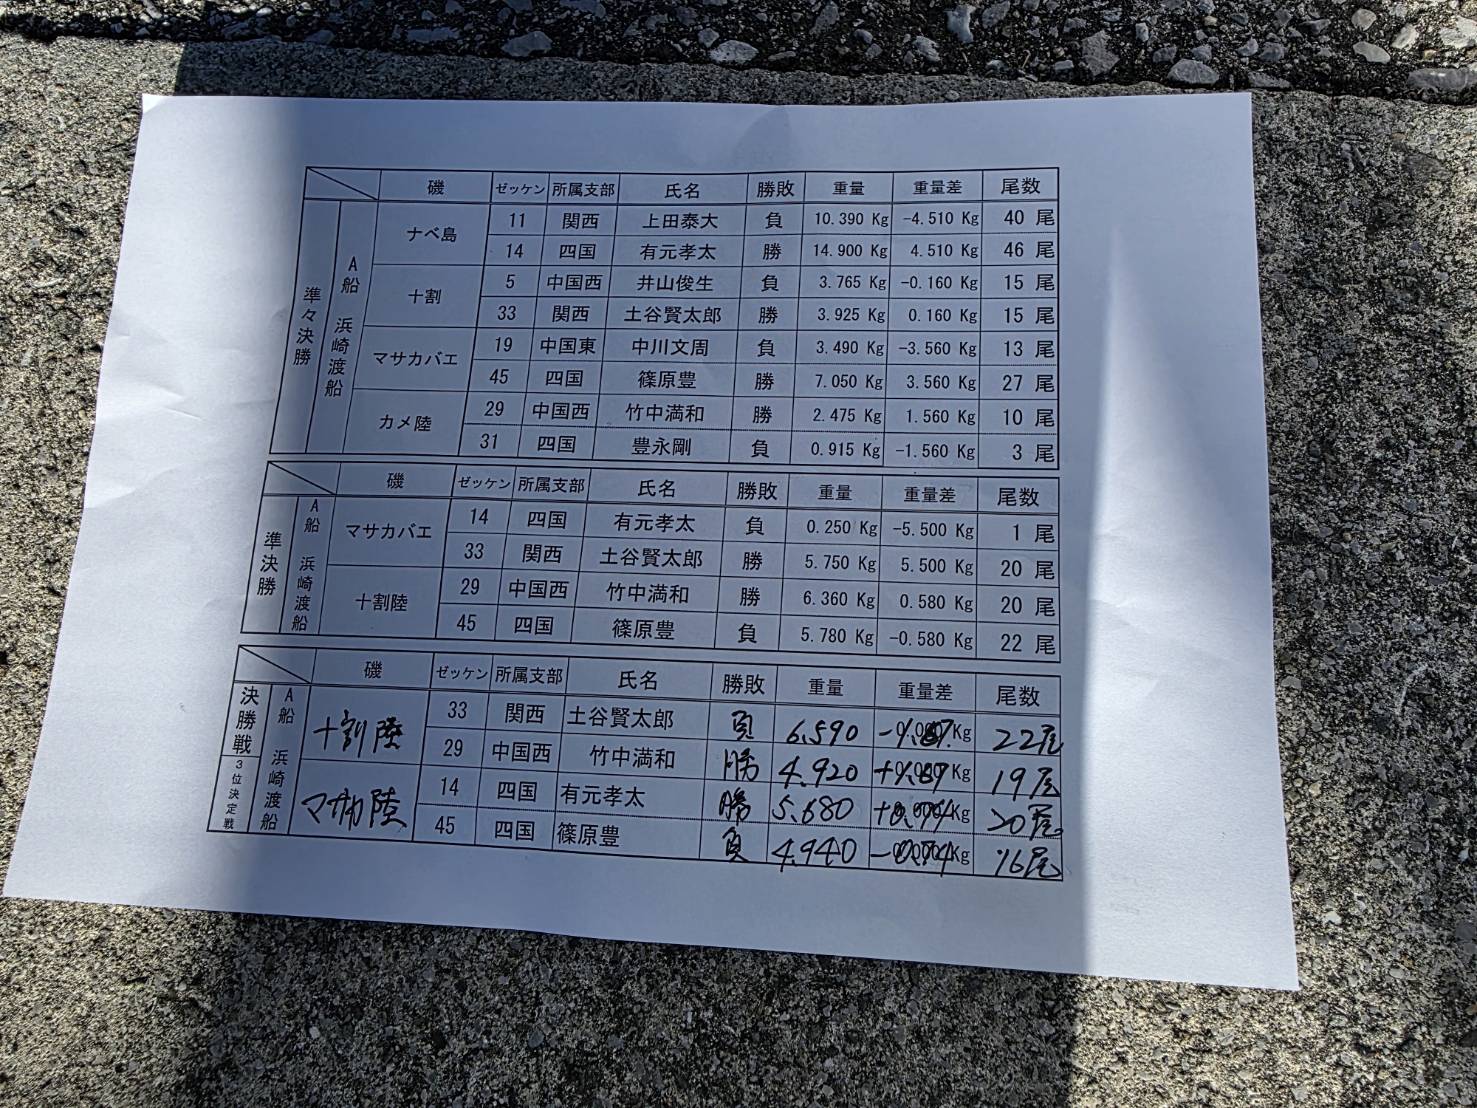 磯 ゼッケン 所属支部 氏名 勝敗 重量 重量差 尾数
準々決勝 A船 浜崎渡船
ナベ島 11 関西 上田泰大 負 10.390 Kg -4.510 Kg 40 尾
14 四国 有元孝太 勝 14.900 Kg 4.510 Kg 46 尾
十割 5 中国西 井山俊生 負 3.765 Kg -0.160 Kg 15 尾
33 関西 土谷賢太郎 勝 3.925 Kg 0.160 Kg 15 尾
マサカバエ 19 中国東 中川文周 負 3.490 Kg -3.560 Kg 13 尾
45 四国 篠原豊 勝 7.050 Kg 3.560 Kg 27 尾
カメ陸 29 中国西 竹中満和 勝 2.475 Kg 1.560 Kg 10 尾
31 四国 豊永剛 負 0.915 Kg -1.560 Kg 3 尾
磯 ゼッケン 所属支部 氏名 勝敗 重量 重量差 尾数
準決勝 A船 浜崎渡船
マサカバエ 14 四国 有元孝太 負 0.250 Kg -5.500 Kg 1 尾
33 関西 土谷賢太郎 勝 5.750 Kg 5.500 Kg 20 尾
十割陸 29 中国西 竹中満和 勝 6.360 Kg 0.580 Kg 20 尾
45 四国 篠原豊 負 5.780 Kg -0.580 Kg 22 尾
磯 ゼッケン 所属支部 氏名 勝敗 重量 重量差 尾数
決勝戦 3位決定戦 A船 浜崎渡船
十割陸 33 関西 土谷賢太郎 負 6.590 Kg 22尾
29 中国西 竹中満和 勝 4.920 Kg 19尾
14 四国 有元孝太 勝 5.680 Kg 20尾
45 四国 篠原豊 負 4.940 Kg 16尾